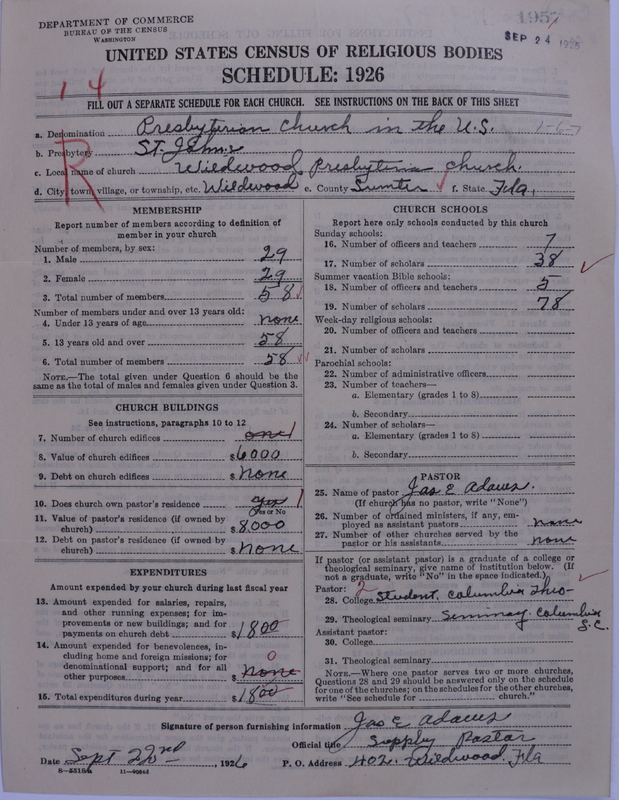 DEPARTMENT OF COMMERCE
BUREAU OF THE CENSUS
WASHINGTON
195
SEP 24 1926
UNITED STATES CENSUS OF RELIGIOUS BODIES
SCHEDULE: 1926
14
FILL OUT A SEPARATE SCHEDULE FOR EACH CHURCH. SEE INSTRUCTIONS ON THE BACK OF THIS SHEET
a. Denomination Presbyterian Church in the U.S. 1-6-7
b. Presbytery St. Johns
R
c. Local name of church Wildwood Presbyterian Church.
d. City, town, village, or township, etc. Wildwood e. County Sumter f. State Fla.
MEMBERSHIP
Report number of members according to definition of member in your church
Number of members, by sex:
1. Male 29
2. Female 29
3. Total number of members 58
Number of members under and over 13 years old:
4. Under 13 years of age none
5. 13 years old and over 58
6. Total number of members 58
NOTE.—The total given under Question 6 should be the
same as the total of males and females given under Question 3.
CHURCH BUILDINGS
See instructions, paragraphs 10 to 12
7. Number of church edifices one 1
8. Value of church edifices $6000
9. Debt on church edifices $ None
10. Does church own pastor's residence yes 1
Yes or No
11. Value of pastor's residence (if owned by
church) $8.000
12. Debt on pastor's residence (if owned by
church) $ None
EXPENDITURES
Amount expended by your church during last fiscal year
13. Amount expended for salaries, repairs,
and other running expenses; for im-
provements or new buildings; and for
payments on church debt $1800
14. Amount expended for benevolences, in-
cluding home and foreign missions; for
denominational support; and for all
other purposes $ None 0
15. Total expenditures during year $1800
CHURCH SCHOOLS
Report here only schools conducted by this church
Sunday schools:
16. Number of officers and teachers 7
17. Number of scholars 38
Summer vacation Bible schools:
18. Number of officers and teachers 5
19. Number of scholars 78
Week-day religious schools:
20. Number of officers and teachers
21. Number of scholars
Parochial schools:
22. Number of administrative officers
23. Number of teachers—
a. Elementary (grades 1 to 8)
b. Secondary
24. Number of scholars—
a. Elementary (grades 1 to 8)
b. Secondary
PASTOR
25. Name of pastor Jas E Adams.
(If church has no pastor, write "None")
26. Number of ordained ministers, if any, em-
ployed as assistant pastors none
27. Number of other churches served by the
pastor or his assistants none
If pastor (or assistant pastor) is a graduate of a college or
theological seminary, give name of institution below. (If
not a graduate, write "No" in the space indicated.)
Pastor: 2
28. College Student. Columbia Theo-
29. Theological seminary Seminary Columbia
S.C.
Assistant pastor:
30. College
31. Theological seminary
NOTE.—Where one pastor serves two or more churches,
Questions 28 and 29 should be answered only on the schedule
for one of the churches; on the schedules for the other churches,
write "See schedule for church."
Signature of person furnishing information Jas E Adams
Official title Supply Pastor
Date Sept 22nd, 1926 P. O. Address 402. Wildwood, Fla
11—90842